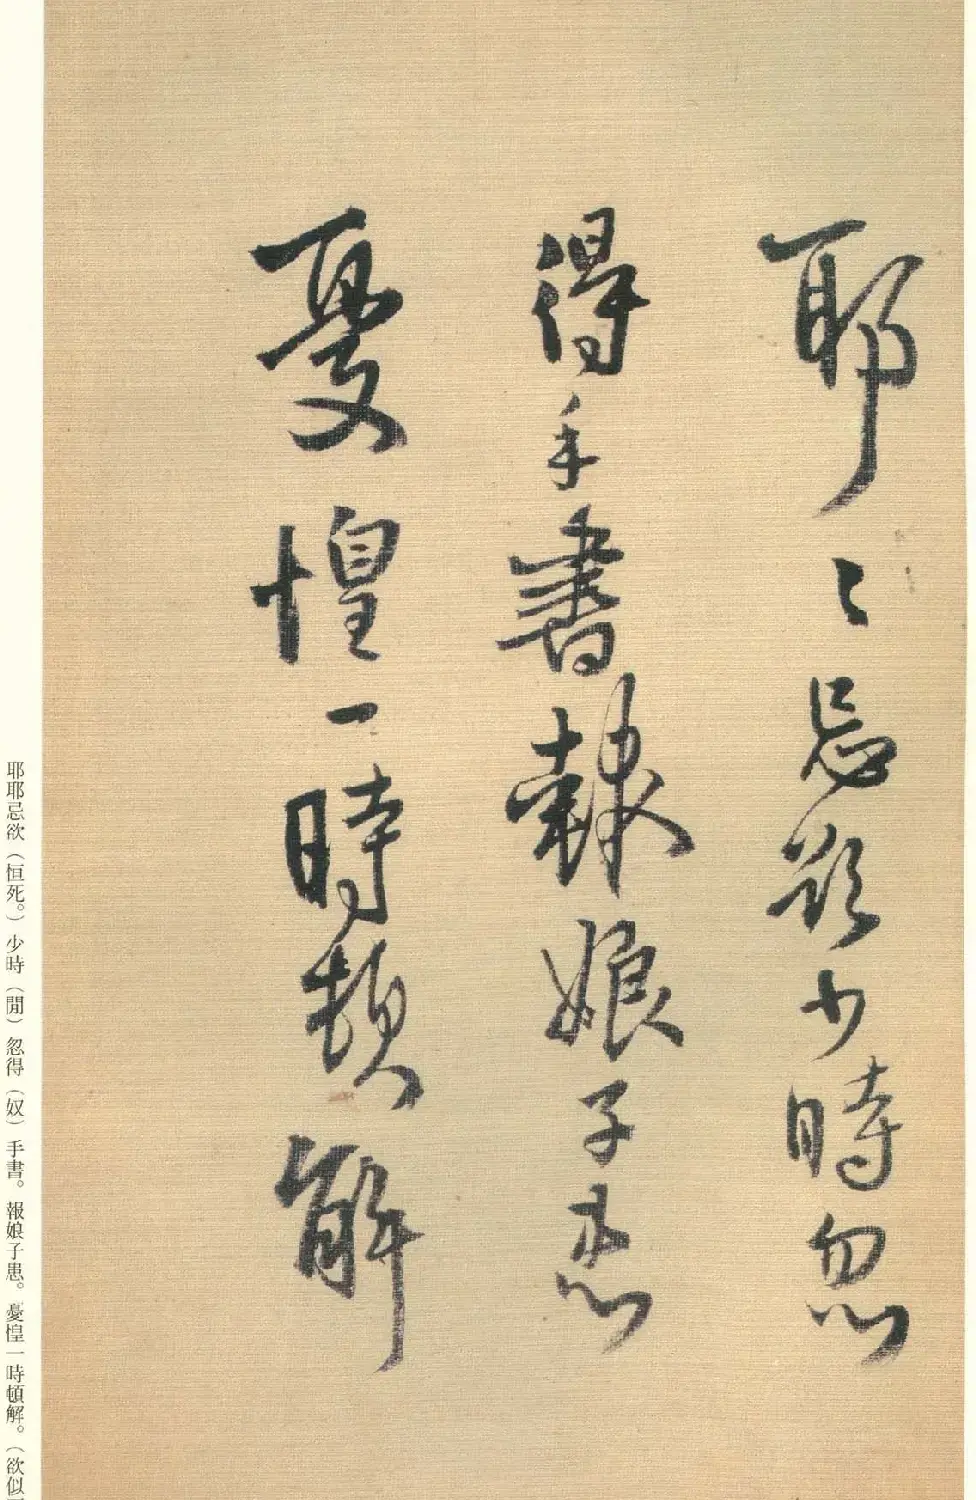 耶〻忌欲少時忽
得手書報娘子患
憂惶一時頓解
耶耶忌欲（恒死。）少時（閒）忽得（奴）手書。報娘子患。憂惶一時頓解。（欲似